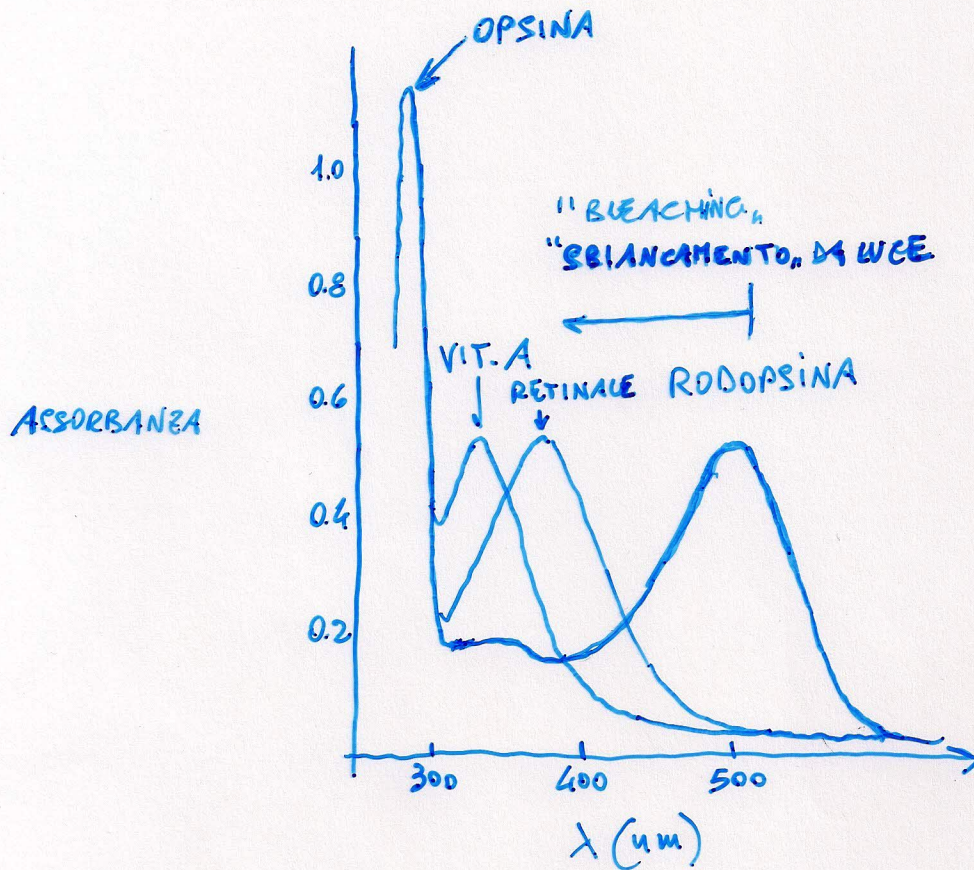 OPSINA
1.0
"BLEACHING„
"SBIANCAMENTO„ DA LUCE
0.8
VIT. A
RETINALE RODOPSINA
0.6
ASSORBANZA
0.4
0.2
300 400 500
λ (nm)